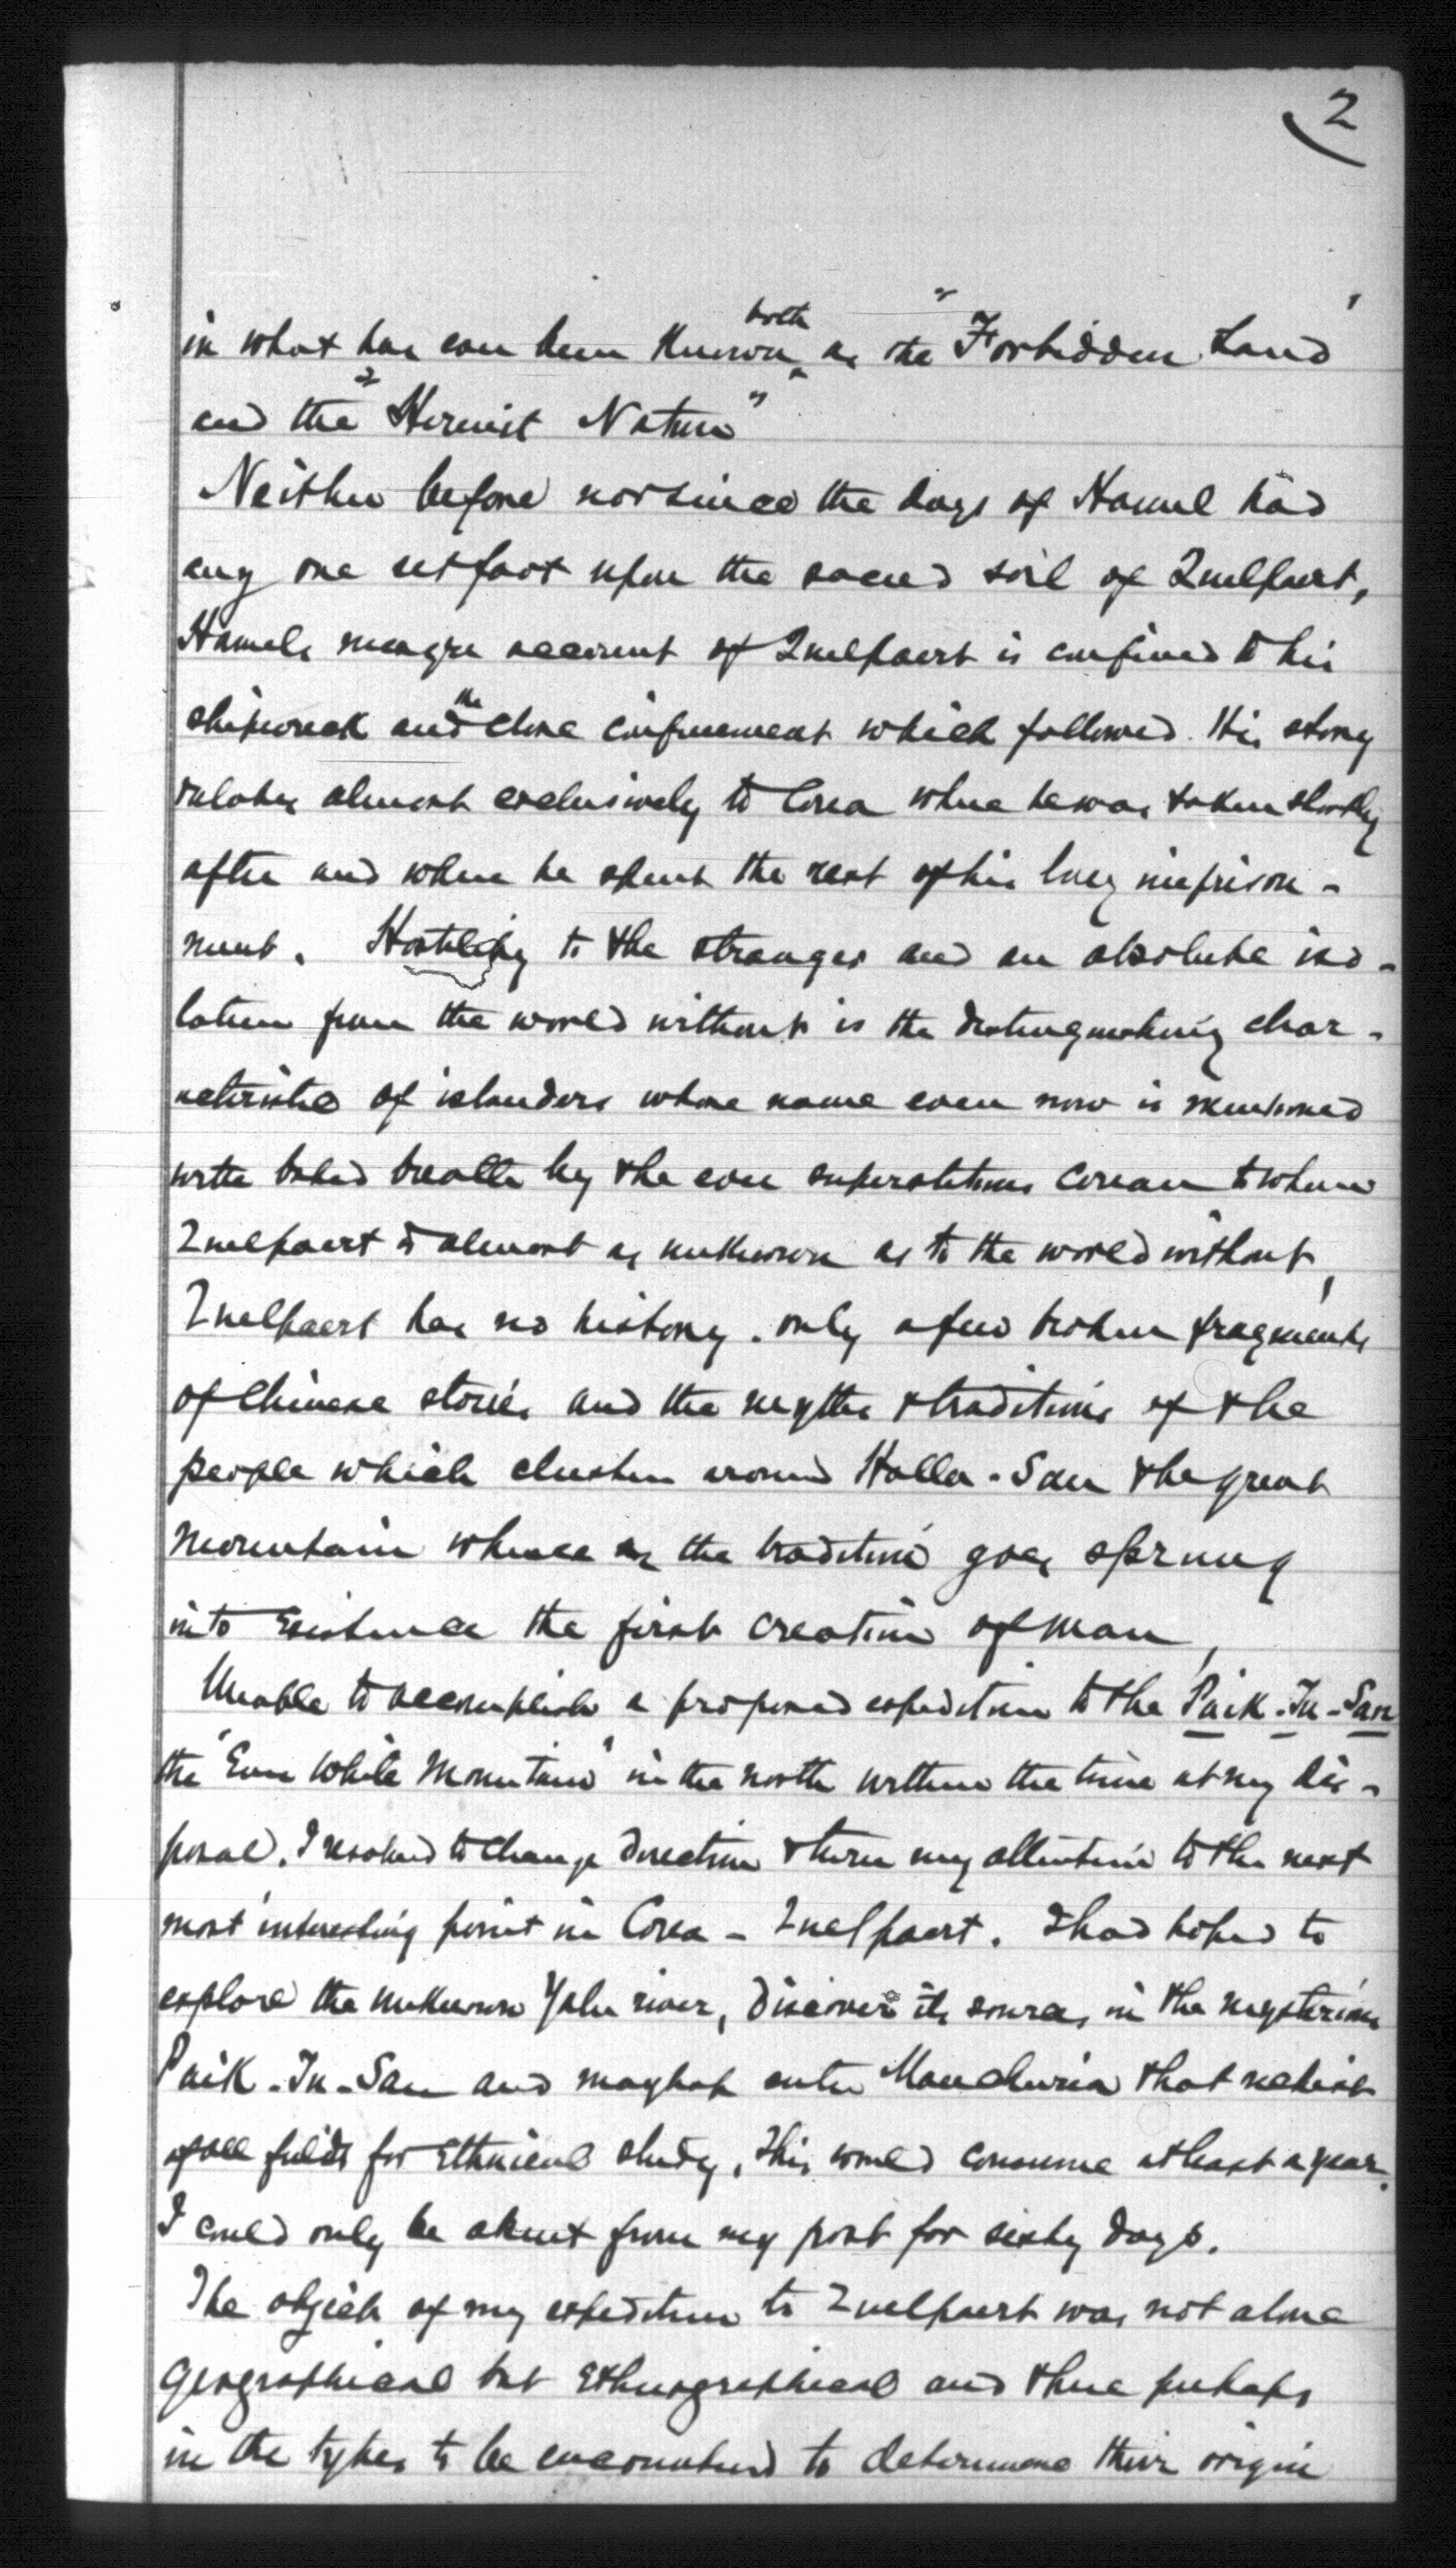 2
in what has ever been known both as the "Forbidden Land"
and the "Hermit Nation"
Neither before nor since the days of Hamel had
any one set foot upon the sacred soil of Quelpaert,
Hamels meagre account of Quelpaert is confined to his
shipwreck and the close confinement which followed. His story
relates almost exclusively to Corea where he was taken shortly
after and where he spent the rest of his long imprison-
ment. Hostility to the stranger and an absolute iso-
lation from the world without is the distinguishing char-
acteristic of islanders whose name even now is mentioned
with bated breath by the ever superstitious Corean to whom
Quelpaert is almost as unknown as to the world without,
Quelpaert has no history. only a few broken fragments
of Chinese stories and the myths & traditions of the
people which cluster around Halla-San the great
mountain whence as the tradition goes sprung
into existence the first creation of man,
Unable to accomplish a proposed expedition to the Paik-Tu-San
the "Ever White Mountain" in the north within the time at my dis-
posal. I resolved to change direction & turn my attention to the next
most interesting point in Corea - Quelpaert. I had hoped to
explore the unknown Yalu river, discover its source, in the mysterious
Paik-Tu-San and mayhap enter Manchuria that richest
of all fields for Ethnical study, this would consume at least a year.
I could only be absent from my post for sixty days.
The object of my expedition to Quelpaert was not alone
geographical but Ethnographical and there perhaps
in the types to be encountered to determine their origin